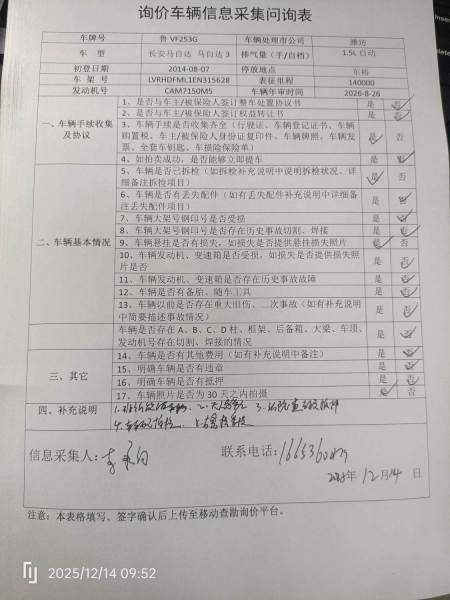 询价车辆信息采集问询表
车牌号 鲁VF253G 车辆处理市公司 潍坊
车 型 长安马自达 马自达3 排气量（手/自档） 1.5L自动
初登日期 2014-08-07 停放地点
车 架 号 LVRHDFML1EN315628 表征里程 140000
发动机号 CAM7150M5 车辆年审时间 2026-8-26
一、车辆手续收集及协议
1、是否与车主/被保险人签订整车处置协议书 是 否
2、是否与车主/被保险人签订权益转让书 是 否
3、车辆手续是否收集齐全（行驶证、车辆登记证书、车辆购置税、车主/被保险人身份证复印件、车辆牌照、车辆发票、全套车钥匙、车损险保险单） 是 否
4、如拍卖成功，是否能够立即提车 是 否
二、车辆基本情况
5、车辆是否已拆检（如拆检补充说明中说明拆检状况、详细备注拆检项目） 是 否
6、车辆是否有丢失配件（如有丢失配件补充说明中详细备注丢失配件项目） 是 否
7、车辆大架号钢印号是否受损 是 否
8、车辆大架号钢印号是否存在历史事故切割、焊接 是 否
9、车辆悬挂是否有损失，如损失是否提供悬挂损失照片 是 否
10、车辆发动机、变速箱是否受损，如损失是否提供损失照片是否 是 否
11、车辆发动机、变速箱是否存在历史事故故障 是 否
12、车辆是否有备胎、随车工具 是 否
13、车辆以前是否存在重大旧伤、二次事故（如有补充说明中简要描述事故情况） 是 否
车辆是否存在A、B、C、D柱、框架、后备箱、大梁、车顶、发动机号存在切割、焊接的情况 是 否
三、其它
14、车辆是否有其他费用（如有补充说明中备注） 是 否
15、明确车辆是否有违章 是 否
16、明确车辆是否有抵押 是 否
17、车辆照片是否为30天之内拍摄 是 否
四、补充说明
信息采集人： 联系电话：
2025年12月14日
注意：本表格填写、签字确认后上传至移动查勘询价平台。
2025/12/14 09:52